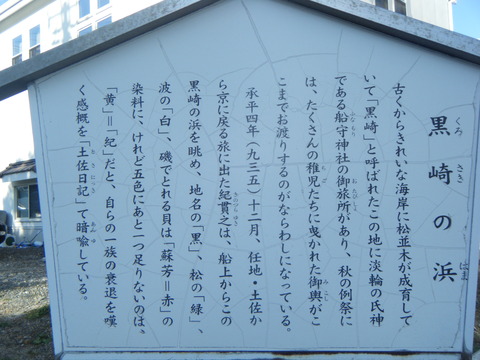 黒崎の浜
くろさきはま
古くからきれいな海岸に松並木が成育して
いて「黒崎」と呼ばれたこの地に淡輪の氏神
である船守神社の御旅所があり、秋の例祭に
ふなもりおたびしょ
は、たくさんの稚児たちに曳かれた御輿がこ
ちごみこし
こまでお渡りするのがならわしになっている。
承平四年(九三五)十二月、任地・土佐か
ら京に戻る旅に出た紀貫之は、船上からこの
きのつらゆき
黒崎の浜を眺め、地名の「黒」、松の「緑」、
波の「白」、磯でとれる貝は「蘇芳＝赤」の
染料に、けれど五色にあと一つ足りないのは、
「黄」＝「紀」だと、自らの一族の衰退を嘆
く感概を「土佐日記」て暗喩している。
とさにっきあんゆ